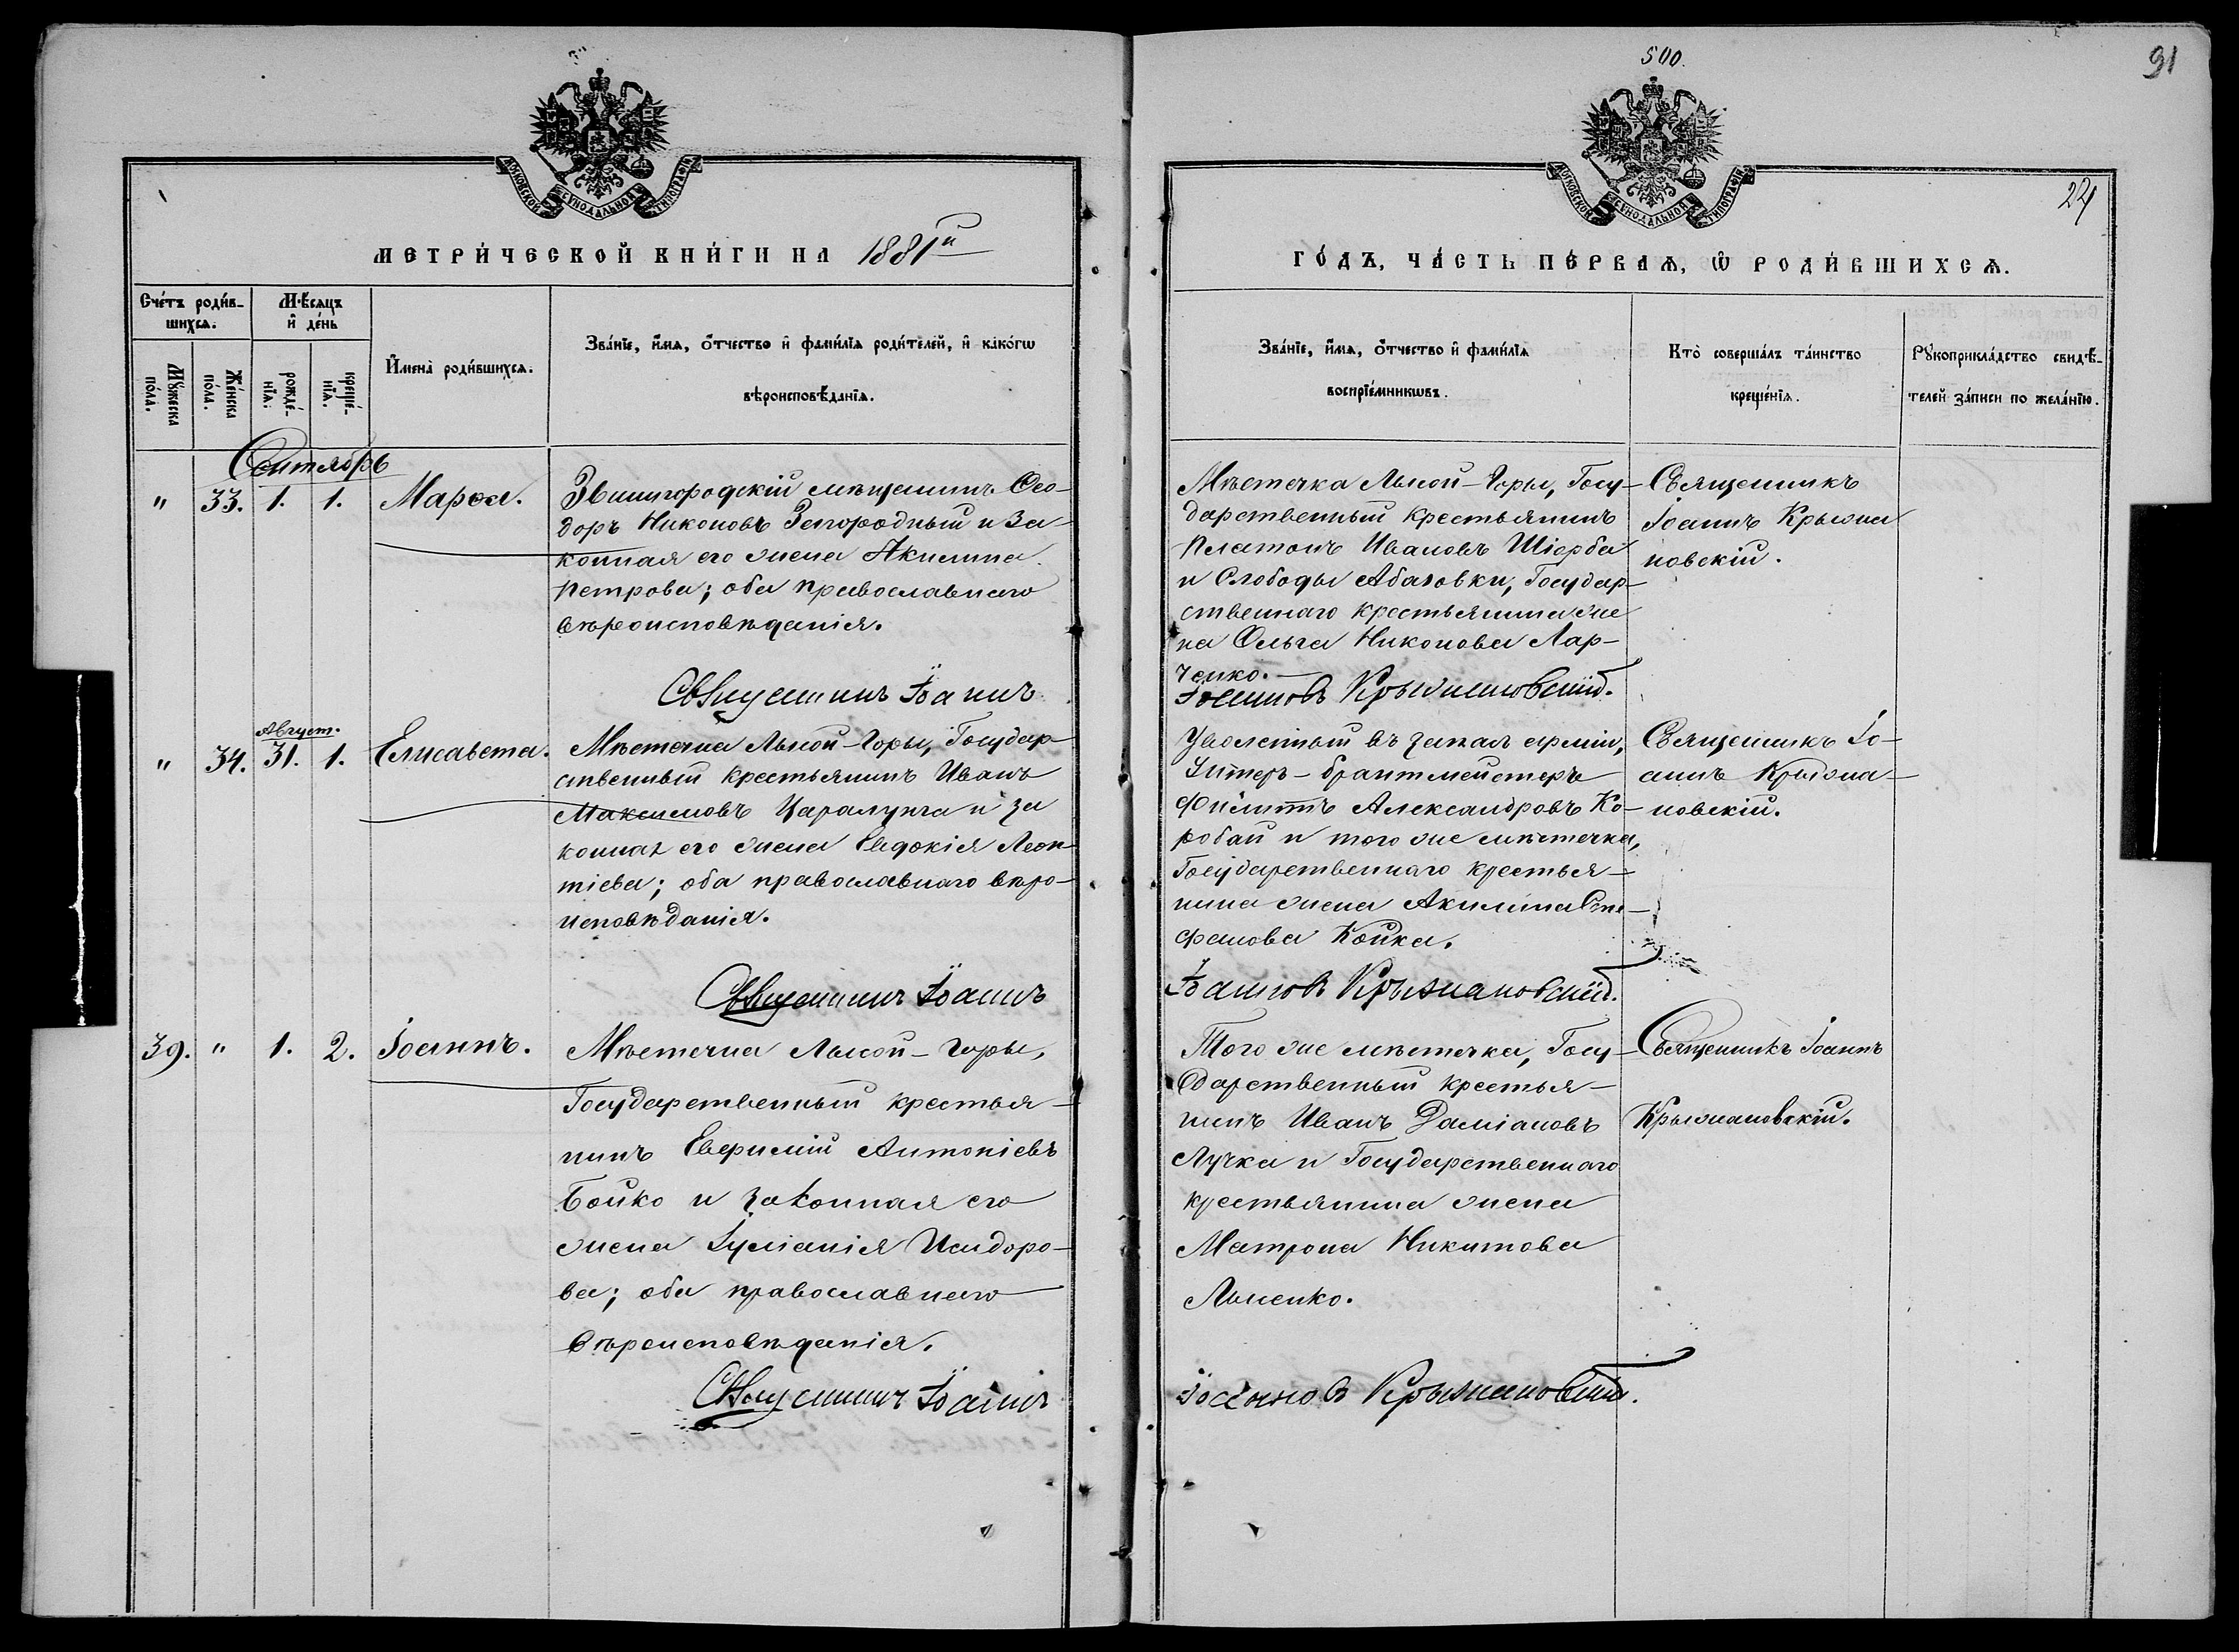 500.
91
МОСКОВСКОЙ СѴНОДАЛЬНОЙ ТИПОГРАФІИ
МОСКОВСКОЙ СѴНОДАЛЬНОЙ ТИПОГРАФІИ
24
МЕТРИ́ЧЕСКОЙ КНИ́ГИ НА 1881й
ГО́ДЪ, ЧА́СТЬ ПЕ́РВАѦ, Ѡ РОДИ́ВШИХСѦ.
Сче́тъ роди́в-
шихсѧ.
Мѣ́сѧцъ
и҆ де́нь
Мꙋ́жеска
по́ла.
Же́нска
по́ла.
рожде́-
нїѧ.
креще́-
нїѧ.
И҆мена̀ роди́вшихсѧ.
Зва́нїе, и҆́мѧ, ѻ҆́тчество и҆ фами́лїѧ роди́телей, и҆ како́гѡ
вѣроисповѣ́данїѧ.
Зва́нїе, и҆́мѧ, ѻ҆́тчество и҆ фами́лїѧ
воспрїе́мникѡвъ.
Кто̀ соверша́лъ та́инство
креще́нїѧ.
Рꙋкоприкла́дство свидѣ́-
телей за́писи по жела́нїю.
Сентябрь
" 33. 1. 1. Марѳа.
Звенигородскій мѣщанинъ Ѳео-
доръ Никоновъ Загородный и за-
конная его жена Акилина
Петрова; оба православнаго
вѣроисповѣданія.
Мѣстечка Лысой-Горы, Госу-
дарственный крестьянинъ
Платонъ Ивановъ Шіорба
и Слободы Абазовки, Государ-
ственнаго крестьянина же
на Ольга Никонова Лар-
ченко.
Священникъ
Іоаннъ Крыжа
новскій.
Священникъ Іоаннъ
Іоанновъ Крыжановскій.
Август.
" 34. 31. 1. Елисавета.
Мѣстечка Лысой-Горы, Государ-
ственный крестьянинъ Иванъ
Максимовъ Царалунга и за
конная его жена Евдокія Леон-
тіева; оба православнаго вѣро-
исповѣданія.
Уволенный въ запасъ арміи,
Унтеръ-брантмейстеръ
Филиппъ Александровъ Ко-
робай и того же мѣстечка,
Государственнаго крестья-
нина жена Акилина Сте-
фанова Койка.
Священникъ Іо-
аннъ Крыжа-
новскій.
Священникъ Іоаннъ
Іоанновъ Крыжановскій.
39. " 1. 2. Іоаннъ.
Мѣстечка Лысой-Горы,
Государственный крестья-
нинъ Евфимій Антоніевъ
Бойко и законная его
жена Іуліанія Исидоро-
ва; оба православнаго
вѣроисповѣданія.
Того же мѣстечка, Госу-
дарственный крестья-
нинъ Иванъ Даміановъ
Лучка и Государственнаго
крестьянина жена
Матрона Никитова
Лысенко.
Священникъ Іоаннъ
Крыжановскій.
Священникъ Іоаннъ
Іоанновъ Крыжановскій.